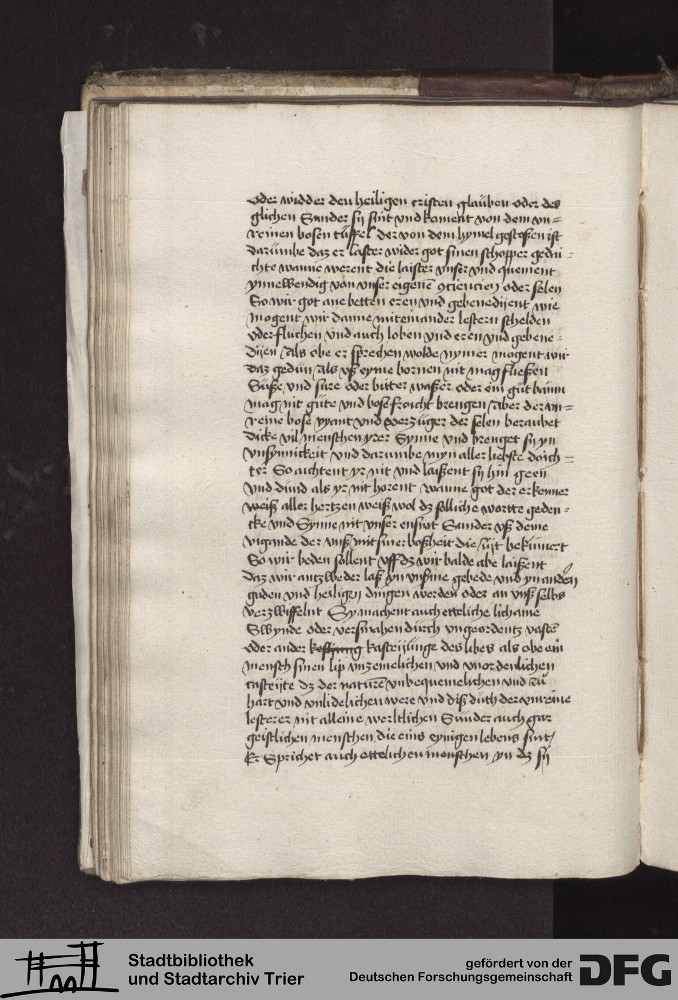 oder widder den heiligen cristen glauben oder des
glichen Sunder sij sint vnd koment von dem vn=
reinen bosen tuffel der von dem hymel gestoßen ist
darumbe daz er laster wider got sinen schopper gedai=
chte wanne werent die laister vnser vnd quement
ynnewendig von vnser eigenē 9ciencien oder selen
So wir got ane betten eren vnd gebenedijent wie
mogent wir danne miteinander lestern schelden
oder fluchen vnd auch loben vnd eren vnd gebene=
dijen Als obe er sprechen wolde nymer mogent wir
daz gedun als vß eyme bornen nit mag fließen
Suße vnd sure oder bitter waßer oder ein gut baum
mag nit gute vnd bose froicht brengen Aber der vn=
reine bose vyant vnd verzuger der selen beraubet
dicke vil menschen yrer Synne vnd brenget sij yn
vnsynnickeit vnd darumbe myn aller liebste doich=
ter So aichtent yr nit vnd laißent sij hin geen
vnd dund als yr nit horent wanne got der erkenner
weiß aller hertzen weiß wol dz solliche wortte geden=
cke vnd Synne nit vnser ensint Sunder vß deme
vigande der vnß mit siner boßheit die zijt bekummert
So wir beden sollent vff dz wir balde abe laißent
daz wir antzweder laß yn vnsme gebede vnd yn anden
guden vnd heiligen dingen werden oder an vnß selbs
verzwiffelnt Sy machent auch etteliche lichame
Swynde oder versmahen durch vngeordentz vasten
oder ander kestijung kastrijunge des libes als obe ein
mensch sinen lip vnzemelichen vnd vnordenlichen
castrijte dz der naturē vnbequemelichen vnd zu
hart vnd vnlidelichen were vnd diß duth der vnreine
lesterer nit alleine werltlichen Sunder auch gar
geistlichen menschen die eins eynigen lebens sint/
Er Sprichet auch ettelichen menschen yn dz sij
Stadtbibliothek
und Stadtarchiv Trier
gefördert von der
Deutschen Forschungsgemeinschaft
DFG